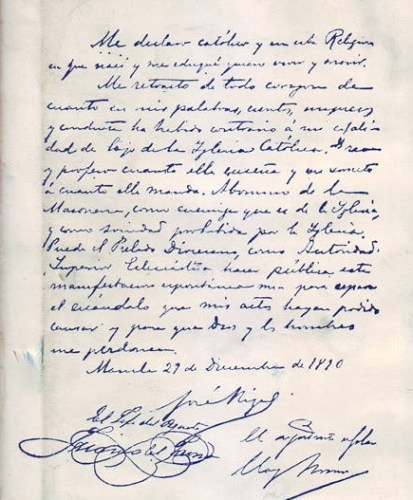 Me declaro católico y en esta Religion
en que naci y me eduqué quiero vivir y morir.
Me retracto de todo corazon de
cuanto en mis palabras, escritos, impresos
y conducta ha habido contrario á mi cuali
dad de hijo de la Iglesia Católica. Creo
y profeso cuanto ella enseña y me someto
á cuanto ella manda. Abomino de la
Masoneria, como enemiga que es de la Iglesia,
y como sociedad prohibida por la Iglesia.
Puede el Prelado Diocesano, como Autoridad
Superior Eclesiástica hacer pública esta
manifestacion espontanea mia para reparar
el escándalo que mis actos hayan podido
causar y para que Dios y los hombres
me perdonen.
Manila 29 de Diciembre de 1890
José Rizal
El Jefe del Piquete
Juan del Fresno
El Ayudante de Plaza
Eloy Moure